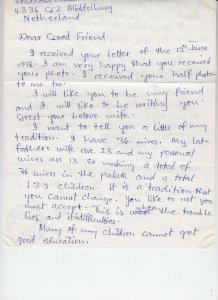 4336 GZ Middelburg
Netherland
Dear Good Friend
I received your letter of the 12th June
1978. I am very happy that you received
your photo. I received your half photo
to me too.
I will like you to be my friend
and I will like to be writing you.
Greet your belove wife.
I want to tell you a little of my
tradition. I have 36 wives. My late
fathers wives are 23 and my personal
wives are 13 so making a total of
36 wives in the palace and a total of
133 children. It is a tradition that
you cannot change. you like or not you
must accept. This is when the trouble
lies and difficulties.
Many of my children cannot get
good education.